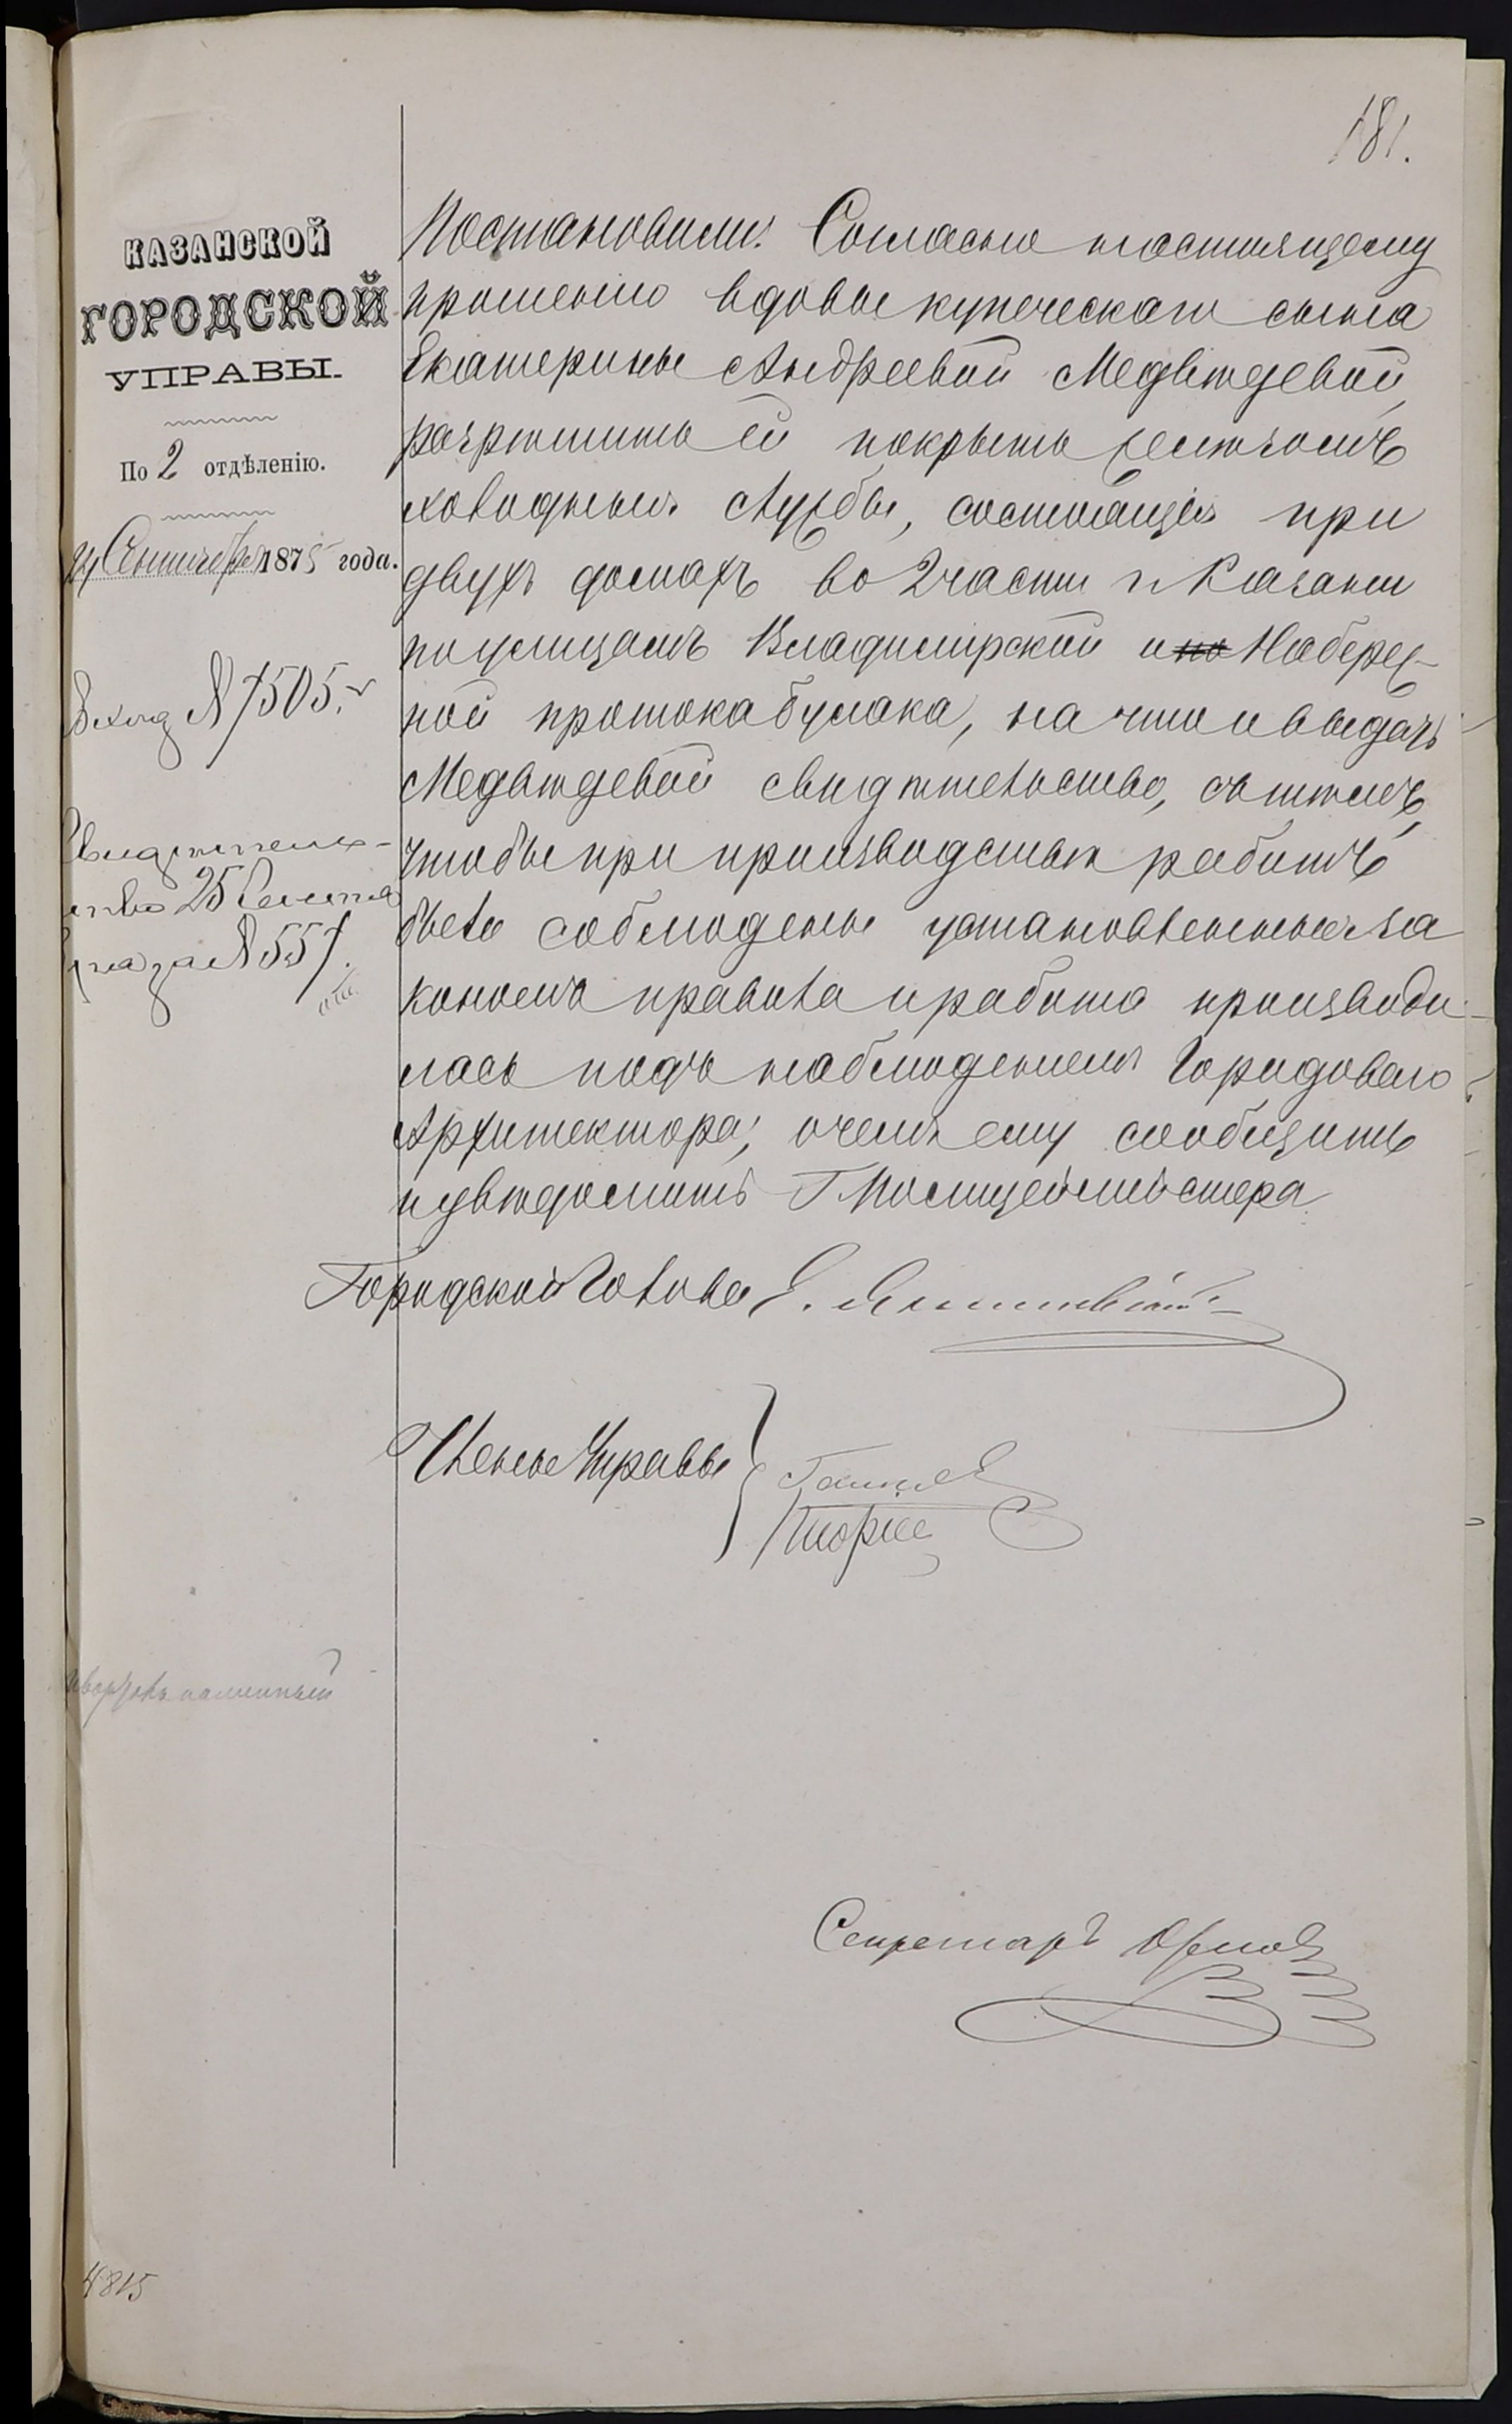 181.
КАЗАНСКОЙ
ГОРОДСКОЙ
УПРАВЫ.
По 2 отдѣленію.
24 Сентября 1875 года.
Вход № 7505.
Свидѣтель-
ство 25 Сентяб
№ 557.
Постановили: Согласно настоящему
прошенію вдовы купеческаго сына
Екатерины Андреевой Медвѣдевой,
разрѣшить ей покрыть желѣзомъ
холодныя службы, состоящія при
двухъ домахъ во 2 части г. Казани
по улицамъ Владимірской и по Набереж-
ной протока булака, на что и выдать
Медвѣдевой свидѣтельство, съ тѣмъ,
чтобы при производствѣ работъ
были соблюдены установленныя за
кономъ правила и работа производи-
лась подъ наблюденіемъ Городоваго
Архитектора; о чемъ ему сообщить
и увѣдомить Г. Полицеймейстера.
Городской Голова Э. Янишевскій
Члены Управы
Секретарь Орлов
4815